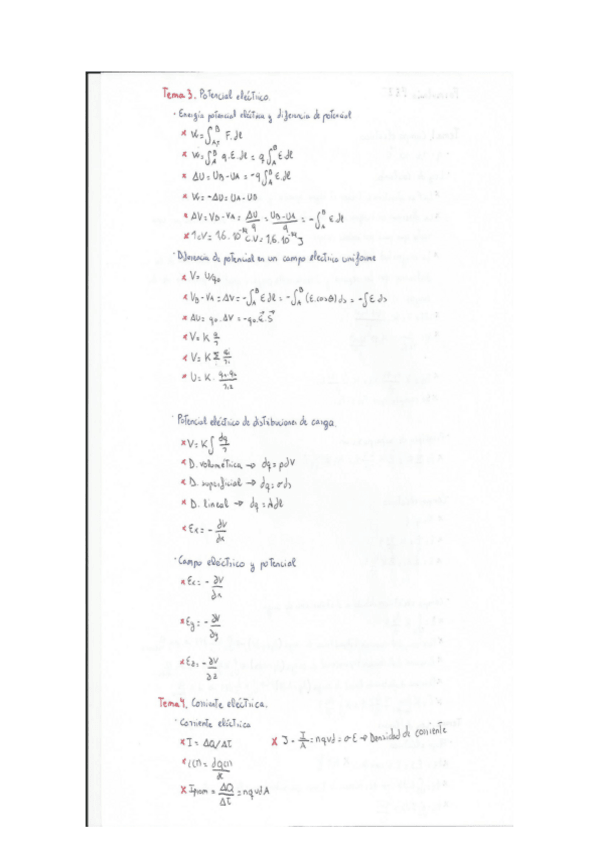 Tema 3. Potencial eléctrico.
· Energía potencial eléctrica y diferencia de potencial
× W = ∫_A^B F.dl
× W = ∫_A^B q.E.dl = q∫_A^B E.dl
× ΔU = U_B - U_A = -q∫_A^B E.dl
× W = -ΔU = U_A - U_B
× ΔV = V_B - V_A = ΔU/q = (U_B - U_A)/q = -∫_A^B E.dl
× 1eV = 1,6.10^-19 C.V = 1,6.10^-19 J
· Diferencia de potencial en un campo eléctrico uniforme
× V = U/q₀
× V_B - V_A = ΔV = -∫_A^B E.dl = -∫_A^B (E.cosθ) ds = -∫E ds
× ΔU = q₀.ΔV = -q₀.E⃗.S⃗
× V = K q/r
× V = K Σ qi/ri
× U = K.
· Potencial eléctrico de distribuciones de carga.
× V = K∫ dq/r
× D. volumétrica → dq = ρdV
× D. superficial → dq = σds
× D. lineal → dq = λdl
× Ex = - dV/dx
· Campo eléctrico y potencial
× Ex = - ∂V/∂x
× Ey = - ∂V/∂y
× Ez = - ∂V/∂z
Tema 4. Corriente eléctrica.
· Corriente eléctrica
× I = ΔQ/Δt
× J = I/A = nqvd = σ.E → Densidad de corriente
× i(t) = dq(t)/dt
× Iprom = ΔQ/Δt = nqvdA